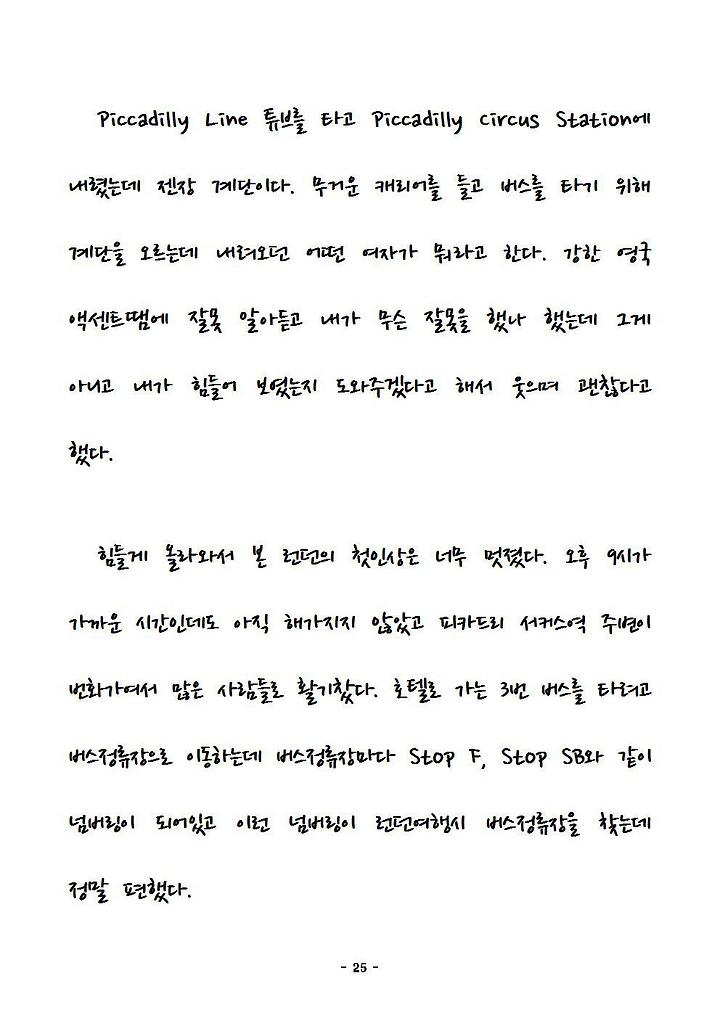 Piccadilly Line 튜브를 타고 Piccadilly Circus Station에
내렸는데 젠장 계단이다. 무거운 캐리어를 들고 버스를 타기 위해
계단을 오르는데 내려오던 어떤 여자가 뭐라고 한다. 강한 영국
액센트땜에 잘못 알아듣고 내가 무슨 잘못을 했나 했는데 그게
아니고 내가 힘들어 보였는지 도와주겠다고 해서 웃으며 괜찮다고
했다.
힘들게 올라와서 본 런던의 첫인상은 너무 멋졌다. 오후 9시가
가까운 시간인데도 아직 해가지지 않았고 피카드리 서커스역 주변이
번화가여서 많은 사람들로 활기찼다. 호텔로 가는 3번 버스를 타려고
버스정류장으로 이동하는데 버스정류장마다 Stop F, Stop SB와 같이
넘버링이 되어있고 이런 넘버링이 런던여행시 버스정류장을 찾는데
정말 편했다.
- 25 -